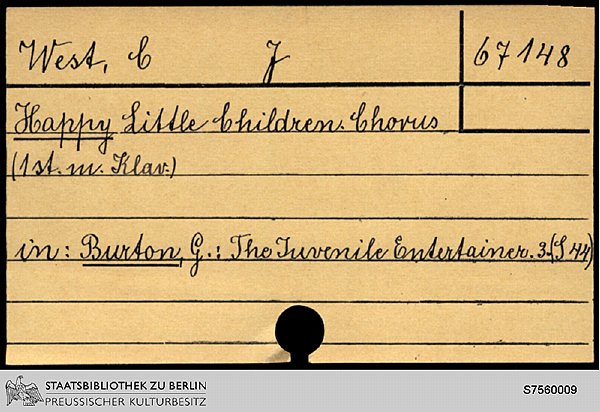 West, C J 67148
Happy Little Children. Chorus
(1st. m. Klav.)
in: Burton, G.: The Juvenile Entertainer. 3. (S 44)
STAATSBIBLIOTHEK ZU BERLIN
PREUSSISCHER KULTURBESITZ
S7560009